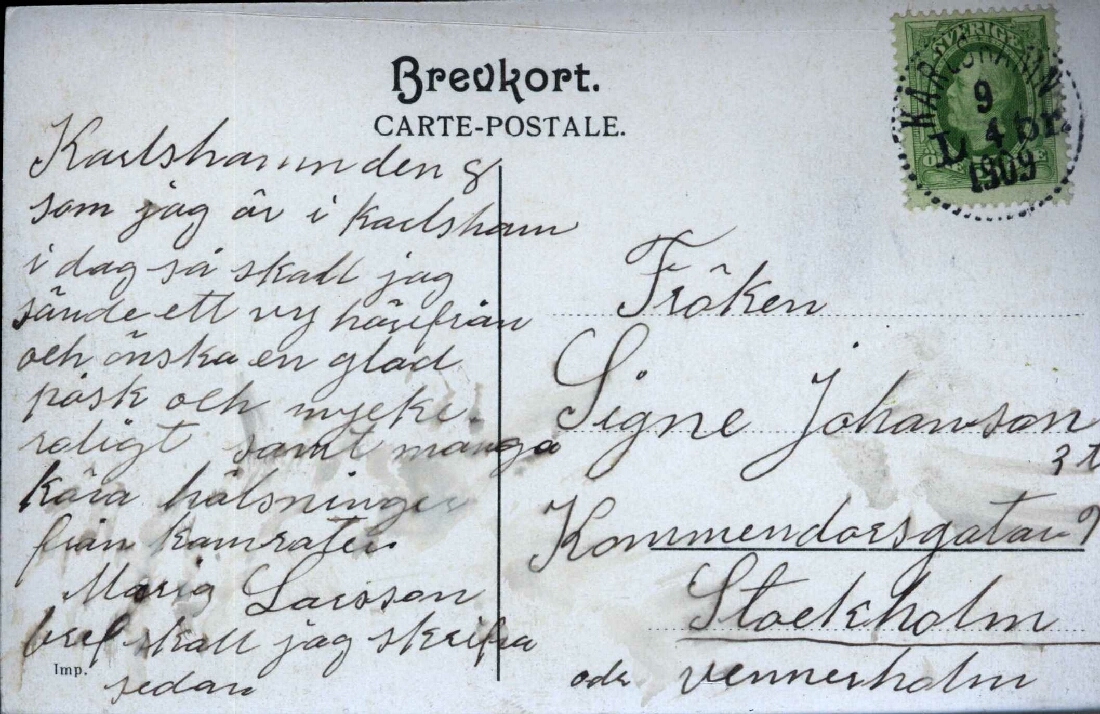 Brevkort.
CARTE-POSTALE.
SVERIGE
KARLSHAMN
9
4
1909
Karlshamn den 8
som jag är i Karlshamn
i dag så skall jag
sände ett vy härifrån
och önska en glad
påsk och mycke
roligt samt många
kära hälsninger
från kamraten
Maria Larsson
bref skall jag skrifva
sedan
Imp.
Fröken
Signe Johanson
3 t
Kommendörsgatan 9
Stockholm
oder vennerholm